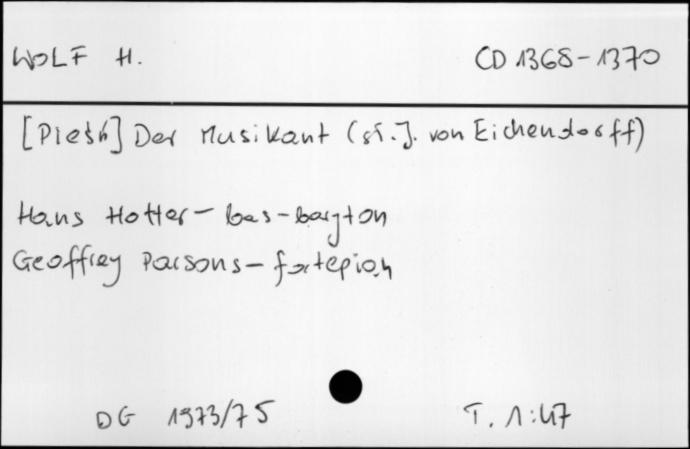 WOLF H. CD 1368-1370
[Pieśń] Der Musikant (sł. J. von Eichendorff)
Hans Hotter - bas-baryton
Geoffrey Parsons - fortepian
DG 1973/75 T. 1:47